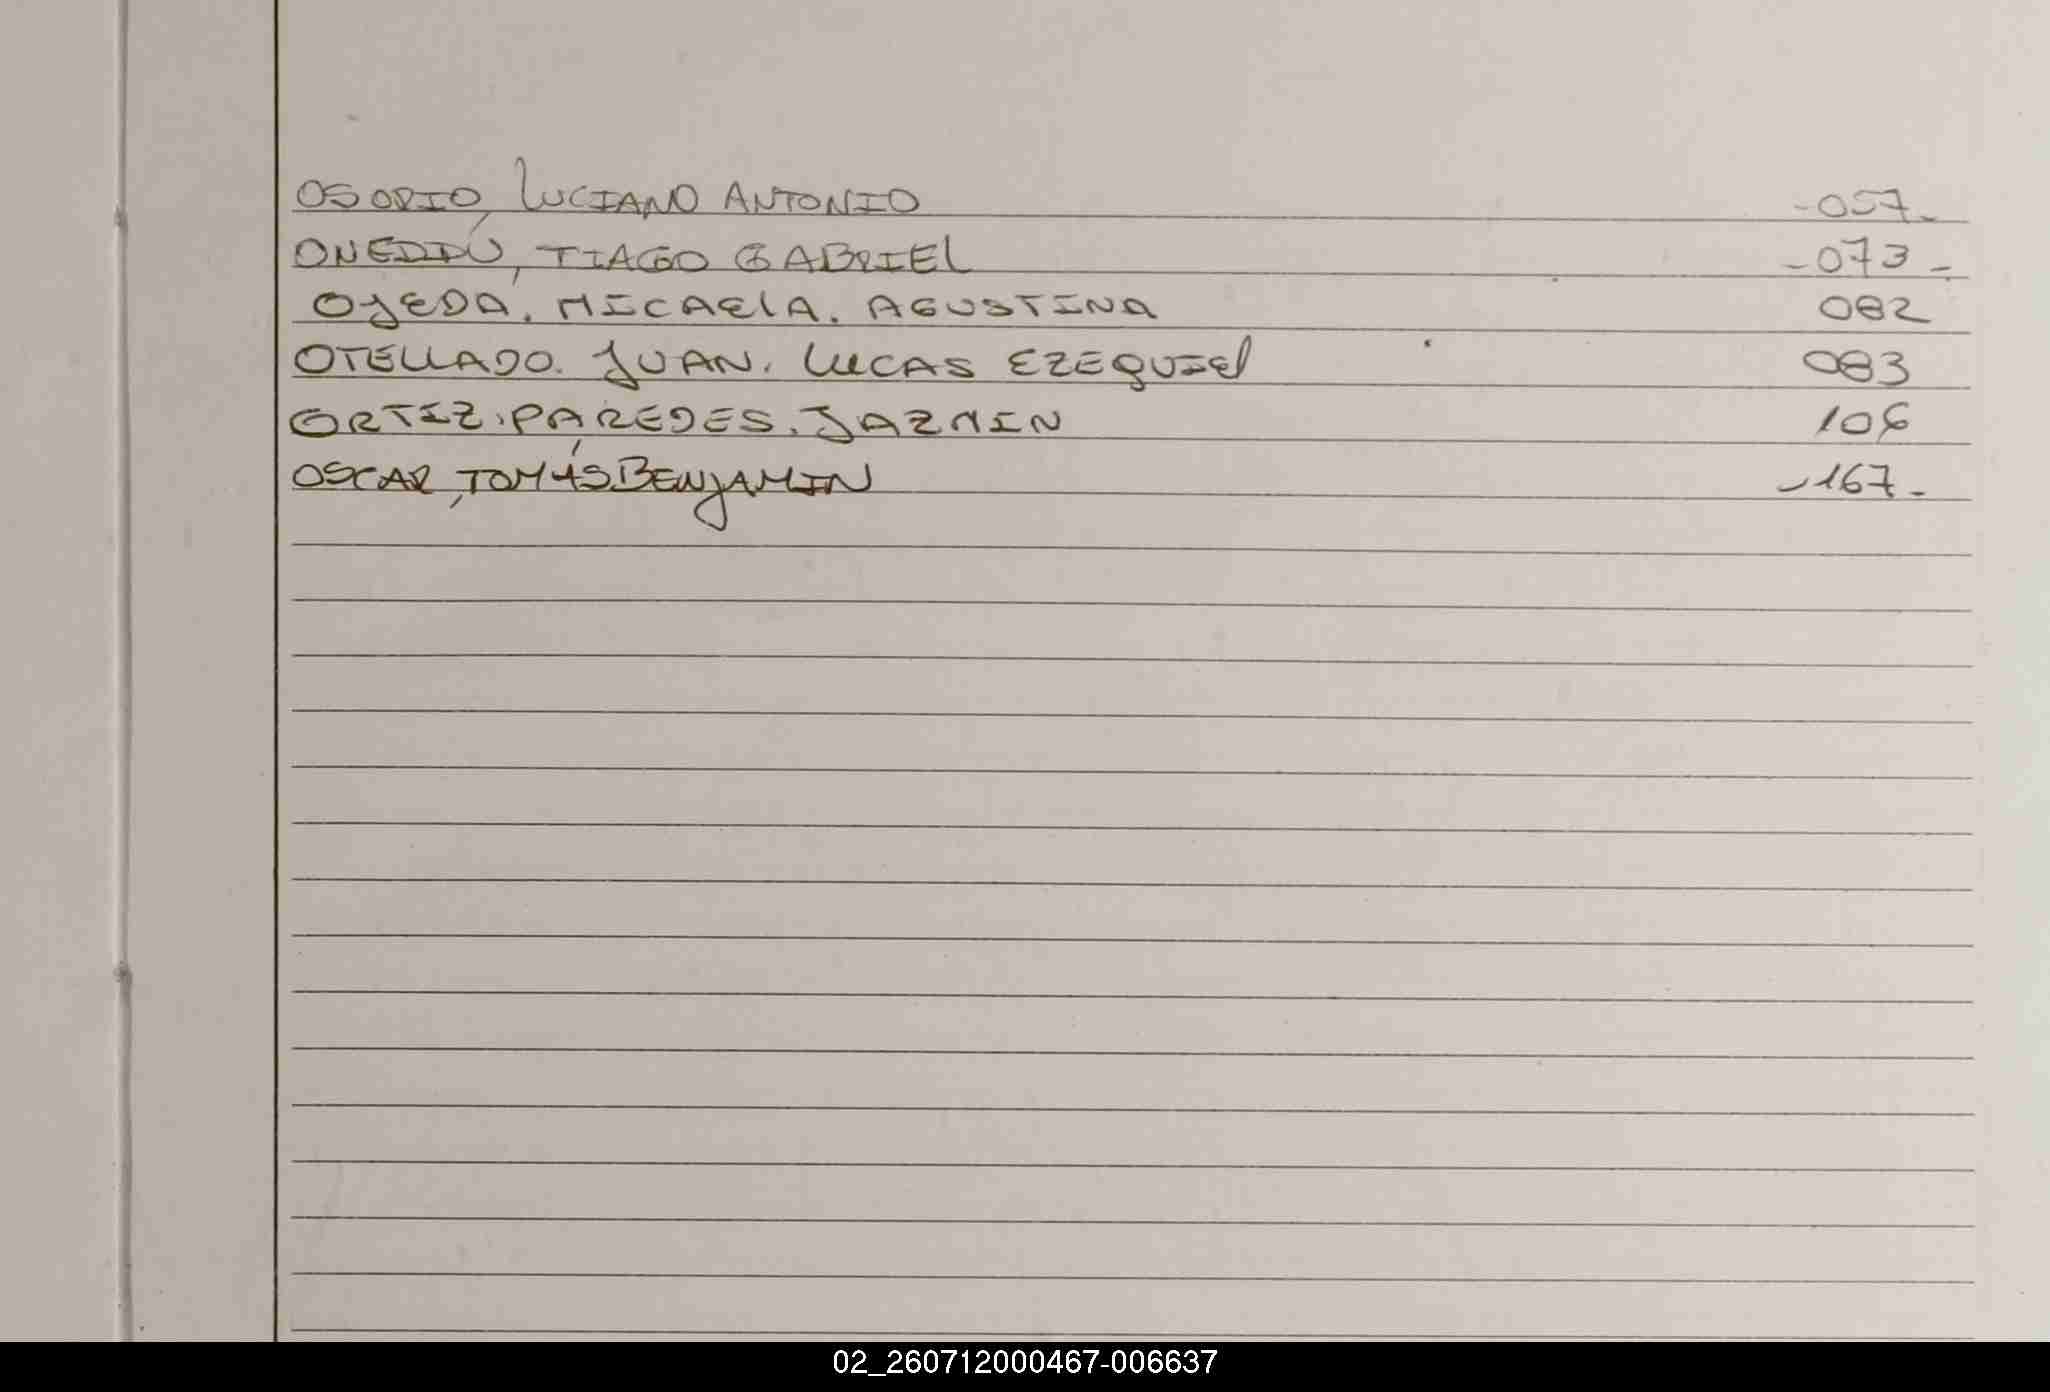 OSORIO, LUCIANO ANTONIO -057-
ONEDDÚ, TIAGO GABRIEL -073-
OJEDA. MICAELA. AGUSTINA 082
OTELLADO. JUAN. LUCAS EZEQUIEL 083
ORTIZ. PAREDES. JAZMIN 106
OSCAR, TOMÁS BENJAMIN -167-
02_260712000467-006637